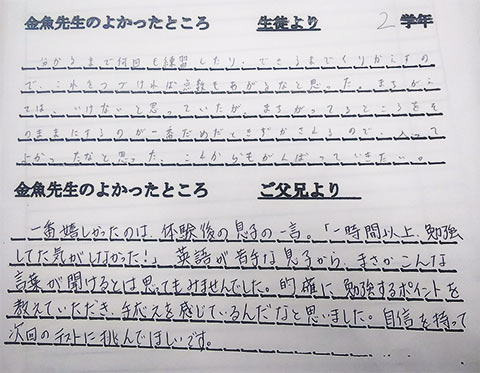 金魚先生のよかったところ 生徒より 2 学年
分かるまで何回も練習したり、できるまでくりかえすの
で、これをつづければ点数もあがるなと思った。まちがえ
ては、いけないと思っていたが、まちがってるところをそ
のままにするのが一番だめだときずかされるので、入って
よかったなと思った、これからもがんばっていきたい。
金魚先生のよかったところ ご父兄より
一番嬉しかったのは、体験後の息子の一言。「一時間以上、勉強
してた気がしなかった!」英語が苦手な息子から、まさかこんな
言葉が聞けるとは思ってもみませんでした。的確に、勉強するポイントを
教えていただき、手応えを感じているんだなと思いました。自信を持って
次回のテストに挑んでほしいです。